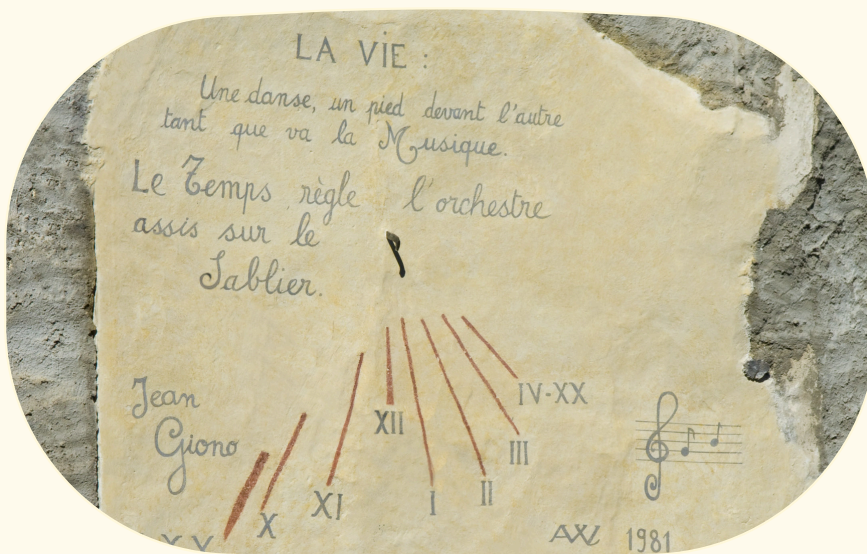 LA VIE :
Une danse, un pied devant l'autre
tant que va la Musique.
Le Temps règle l'orchestre
assis sur le
Sablier.
Jean
Giono
X
XI
XII
I
II
III
IV-XX
1981